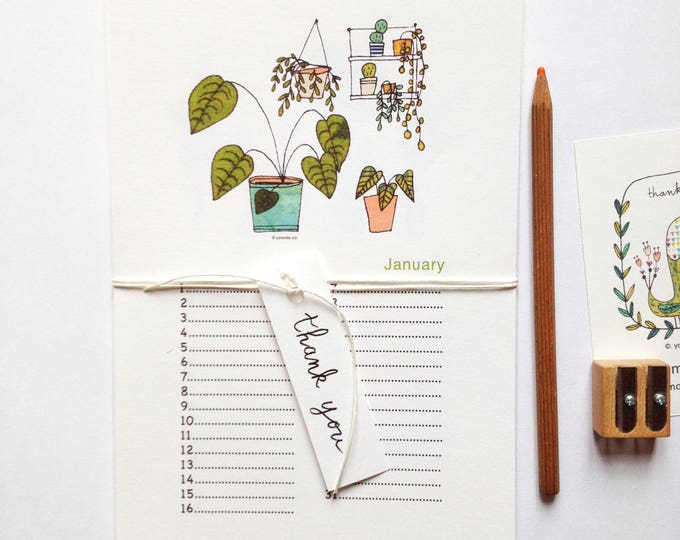 © yolanda.zzz
January
1
2
3
4
5
6
7
8
9
10
11
12
13
14
15
16
31
thank you
thank
© yo
m